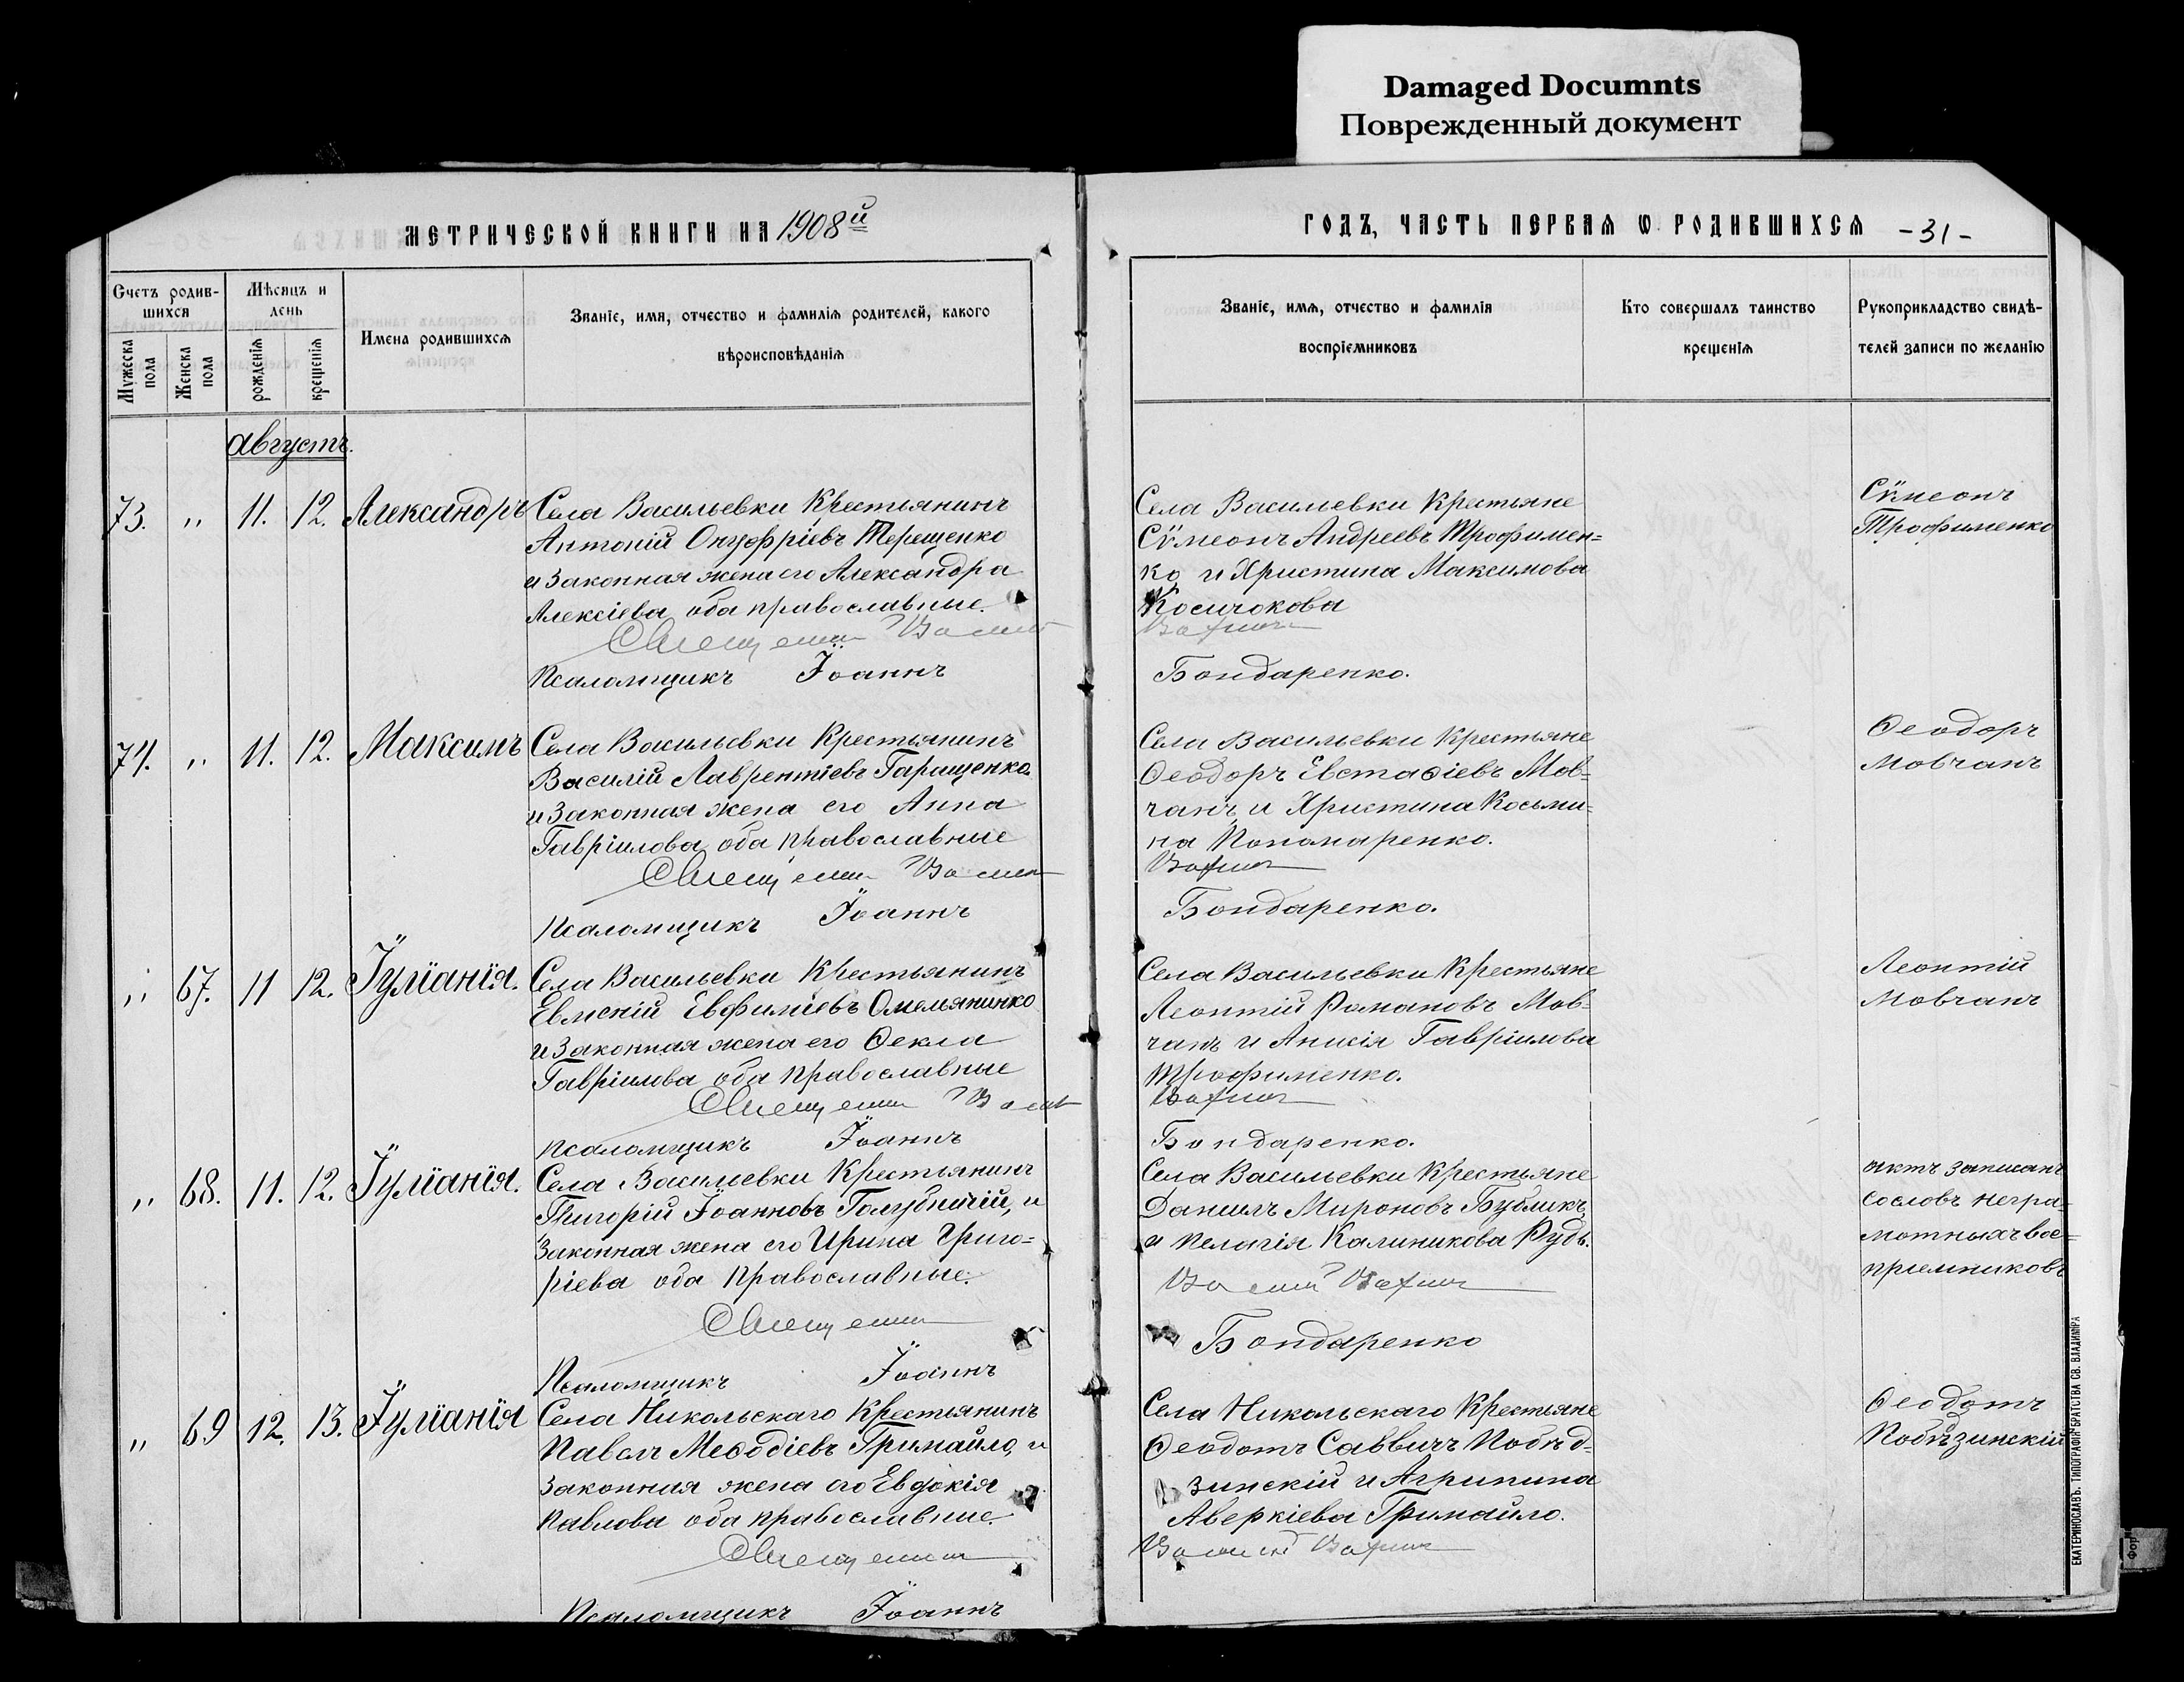 Damaged Documnts
Поврежденный документ
МЕТРИЧЕСКОЙ КНИГИ НА 1908й
ГОДЪ, ЧАСТЬ ПЕРВАЯ Ѡ РОДИВШИХСЯ -31-
Счетъ родив-
шихся
Мѣсяцъ и
день
Мужеска
пола
Женска
пола
рожденія
крещенія
Имена родившихся
Званіе, имя, отчество и фамилія родителей, какого
вѣроисповѣданія
Званіе, имя, отчество и фамилія
воспріемниковъ
Кто совершалъ таинство
крещенія
Рукоприкладство свидѣ-
телей записи по желанію
Августъ.
73. „ 11. 12. Александръ
Села Васильевки Крестьянинъ
Антоній Онуфріевъ Терещенко
и Законная жена его Александра
Алексіева оба православные.
Священник Васил
Псаломщикъ Іоаннъ
Села Васильевки Крестьяне
Сѵмеонъ Андреевъ Трофимен=
ко и Христина Максимова
Косичокова
Бондаренко.
Сѵмеонъ
Трофименко
74. „ 11. 12. Максимъ
Села Васильевки Крестьянинъ
Василій Лаврентіевъ Гаращенко
и Законная жена его Анна
Гавріилова оба православные
Священник Васил
Псаломщикъ Іоаннъ
Села Васильевки Крестьяне
Ѳеодоръ Евстаѳіевъ Мов=
чанъ и Христина Косьми=
на Пономаренко.
Бондаренко.
Ѳеодоръ
Мовчанъ
„ 67. 11 12. Іуліанія.
Села Васильевки Крестьянинъ
Евменій Евфиміевъ Омельяненко
и Законная жена его Ѳекла
Гавріилова оба православные
Священник Васил
Псаломщикъ Іоаннъ
Села Васильевки Крестьяне
Леонтій Романовъ Мов=
чанъ и Анисія Гавріилова
Трофименко.
Бондаренко.
Леонтій
Мовчанъ
„ 68. 11. 12. Іуліанія.
Села Васильевки Крестьянинъ
Григорій Іоанновъ Голубничій, и
Законная жена его Ирина Григо=
ріева оба православные.
Священник
Псаломщикъ Іоаннъ
Села Васильевки Крестьяне
Даніилъ Мироновъ Бубликъ,
и Пелагія Калиникова Рудь.
Бондаренко
актъ записанъ
сословъ негра=
мотныхъ вос=
приемниковъ
„ 69 12. 13. Іуліанія
Села Никольскаго Крестьянинъ
Павелъ Меѳодіевъ Гримайло, и
Законная жена его Евдокія
Павлова оба православные.
Священник
Псаломщикъ Іоаннъ
Села Никольскаго Крестьяне
Ѳеодотъ Саввичъ Побѣд=
зинскій и Агрипина
Аверкіева Гримайло.
Ѳеодотъ
Побѣзинскій
ЕКАТЕРИНОСЛАВЪ. ТИПОГРАФІЯ БРАТСТВА СВ. ВЛАДИМІРА